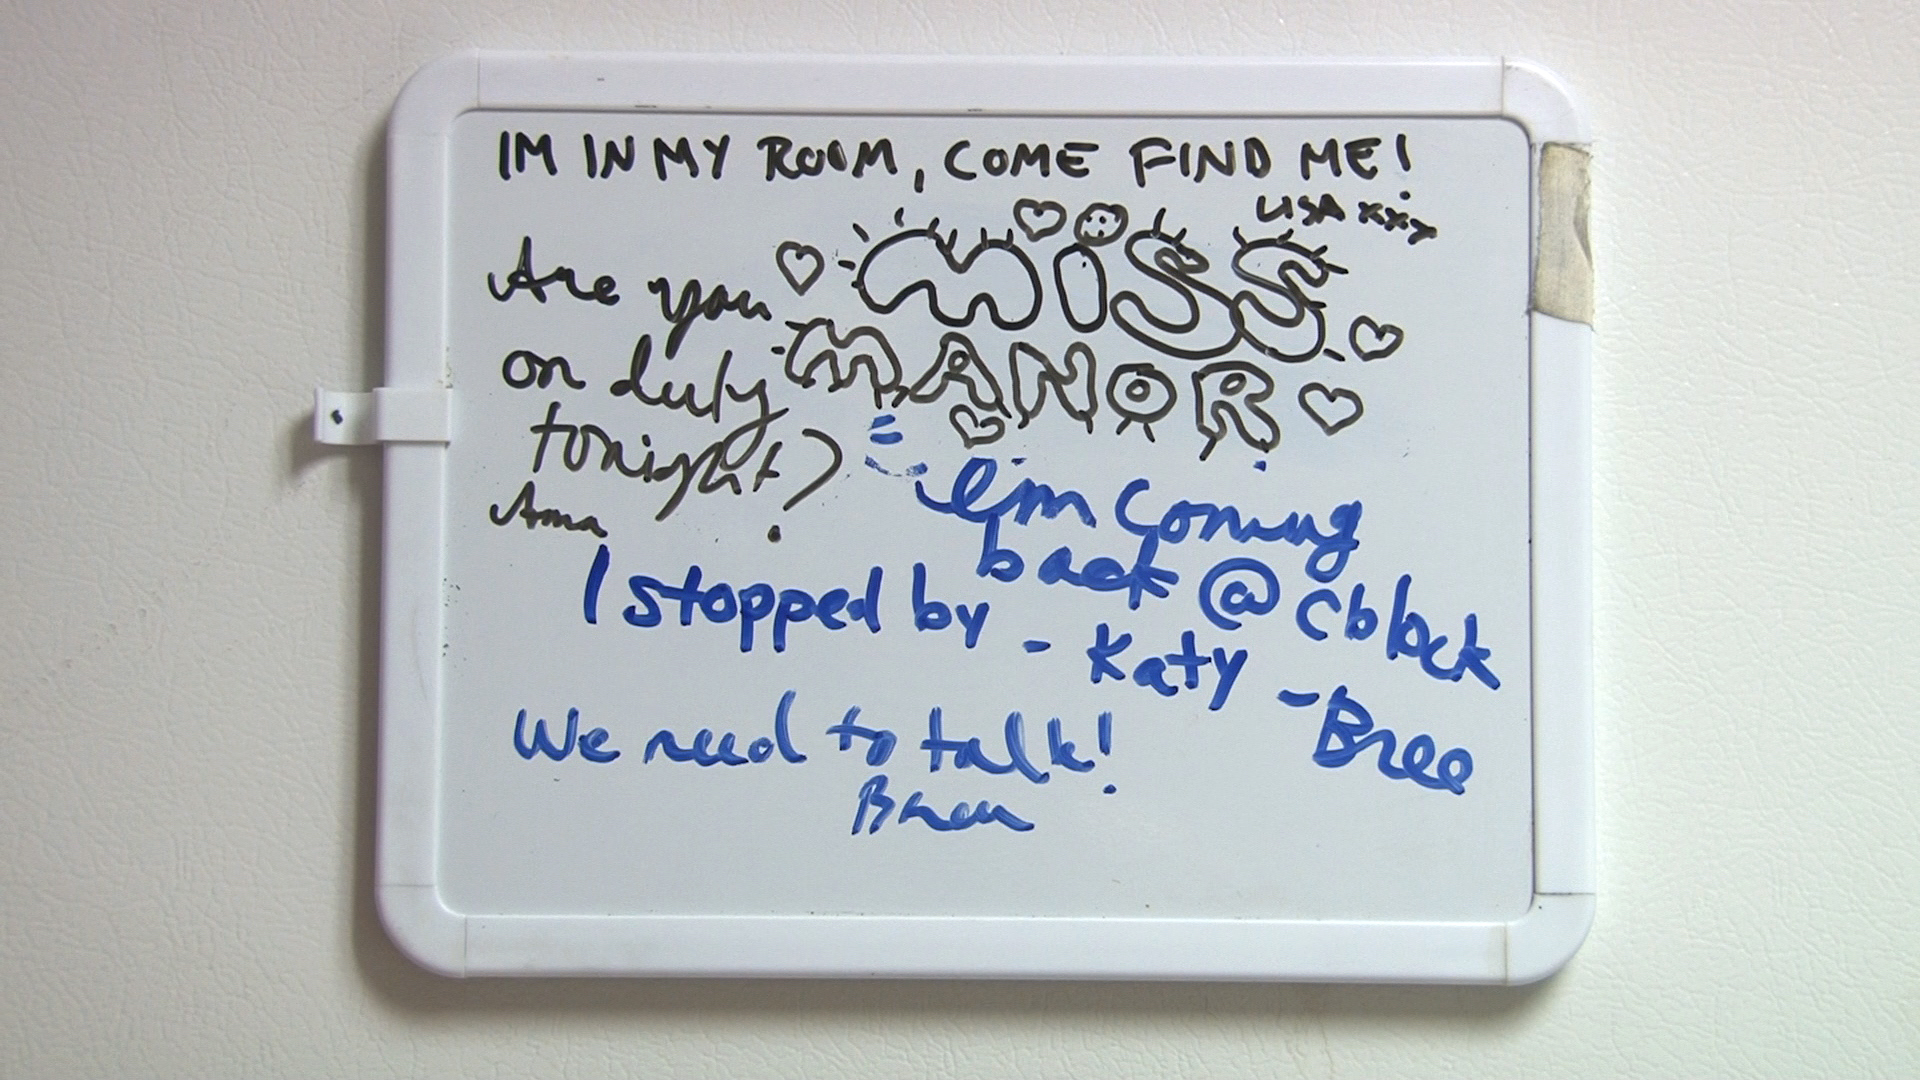 IM IN MY ROOM, COME FIND ME!
LISA xxx
MISS
MANOR
Are you
on duty
tonight?
Anna
I'm coming
back @ C block
- Bree
I stopped by - Katy
We need to talk!